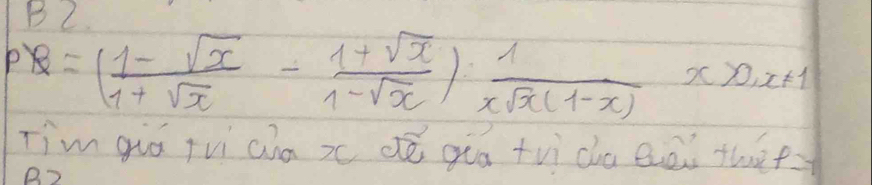 B2.
P = (\frac{1-\sqrt{x}}{1+\sqrt{x}} - \frac{1+\sqrt{x}}{1-\sqrt{x}}) : \frac{1}{x\sqrt{x}(1-x)} x>0, x≠1
Tìm giá trị của x để giá trị của biểu thức =
B3